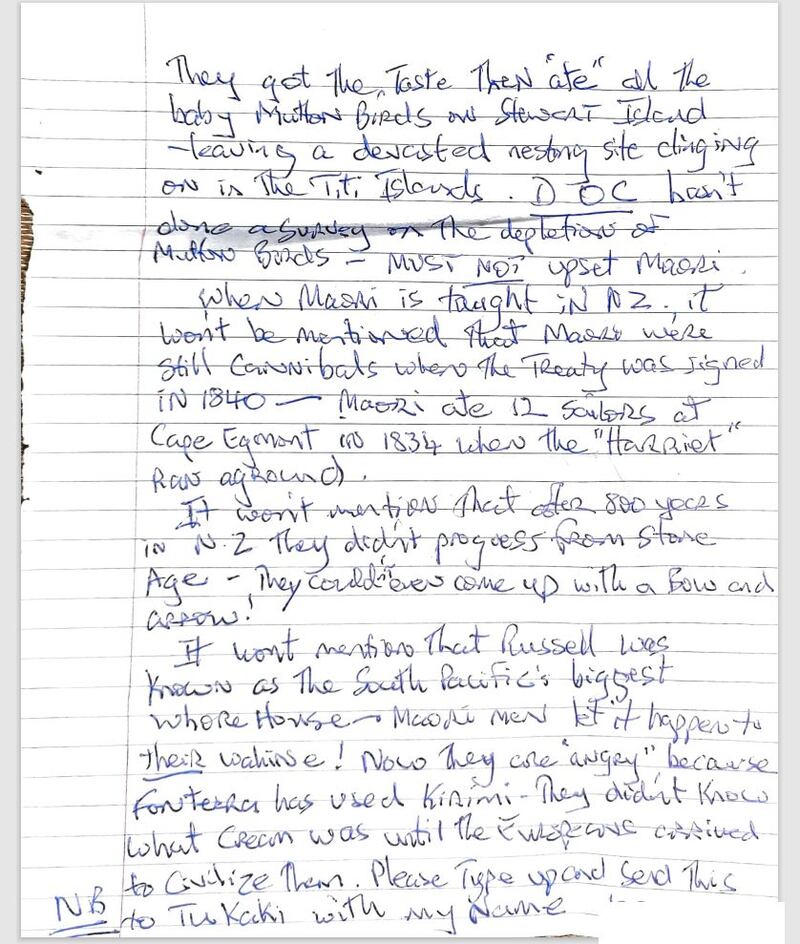 They got the Taste Then "ate" all the
baby Mutton Birds on Stewart Island
- leaving a devasted nesting site clinging
on in The Titi Islands. DOC hasn't
done a survey on The depletion of
Mutton Birds - MUST NOT upset Maori.
When Maori is taught in NZ, it
won't be mentioned that Maori were
still Cannibals when The Treaty was signed
IN 1840 — Maori ate 12 Sailors at
Cape Egmont in 1834 when the "HARRIET"
Ran aground.
It won't mention that after 800 years
in N.Z They didn't progress from Stone
Age - They couldn't even come up with a Bow and
arrow!
It wont mention That Russell was
Known as The South Pacific's biggest
Whore House - Maori men let it happen to
their wahine! Now They are "angry" because
Fonterra has used Kirimi - They didn't Know
what Cream was until The Europeans arrived
to Civilize Them. Please Type up and Send This
NB to Tu Kaki with my Name